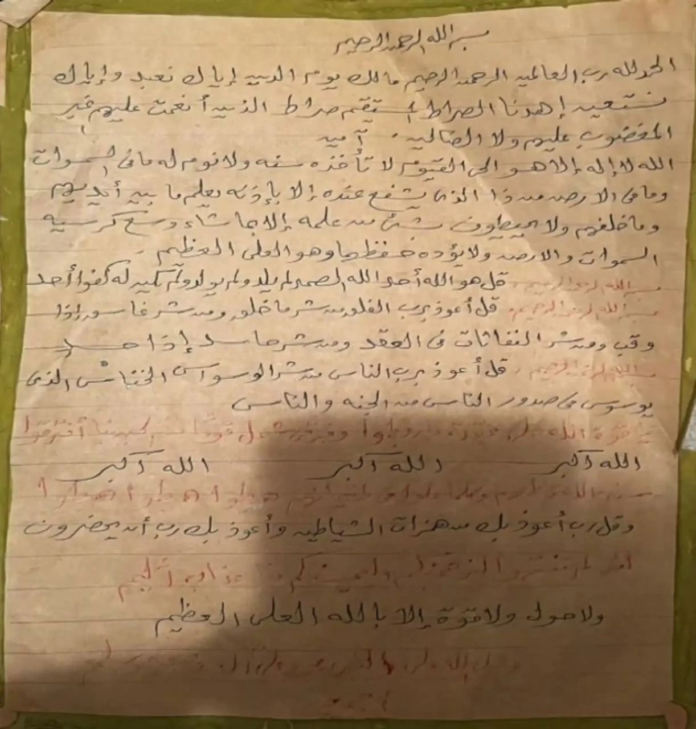 بسم الله الرحمن الرحيم
الحمد لله رب العالمين الرحمن الرحيم مالك يوم الدين إياك نعبد وإياك
نستعين إهدنا الصراط المستقيم صراط الذين أنعمت عليهم غير
المغضوب عليهم ولا الضالين . آمين
الله لا إله إلا هو الحى القيوم لا تأخذه سنه ولا نوم له ما فى السموات
وما فى الارض من ذا الذى يشفع عنده إلا بإذنه يعلم ما بين أيديهم
وما خلفهم ولا يحيطون بشئ من علمه إلا بما شاء وسع كرسيه
السموات والارض ولا يؤده حفظهما وهو العلى العظيم
بسم الله الرحمن الرحيم قل هو الله أحد الله الصمد لم يلد ولم يولد ولم يكن له كفوا أحد
بسم الله الرحمن الرحيم قل أعوذ برب الفلق من شر ما خلق ومن شر غاسق إذا
وقب ومن شر النفاثات فى العقد ومن شر حاسد إذا حسد
بسم الله الرحمن الرحيم قل أعوذ برب الناس من شر الوسواس الخناس الذى
يوسوس فى صدور الناس من الجنه والناس
الله أكبر الله أكبر الله أكبر
وقل رب أعوذ بك من همزات الشياطين وأعوذ بك رب أن يحضرون
عذاب أليم
ولا حول ولا قوة إلا بالله العلى العظيم